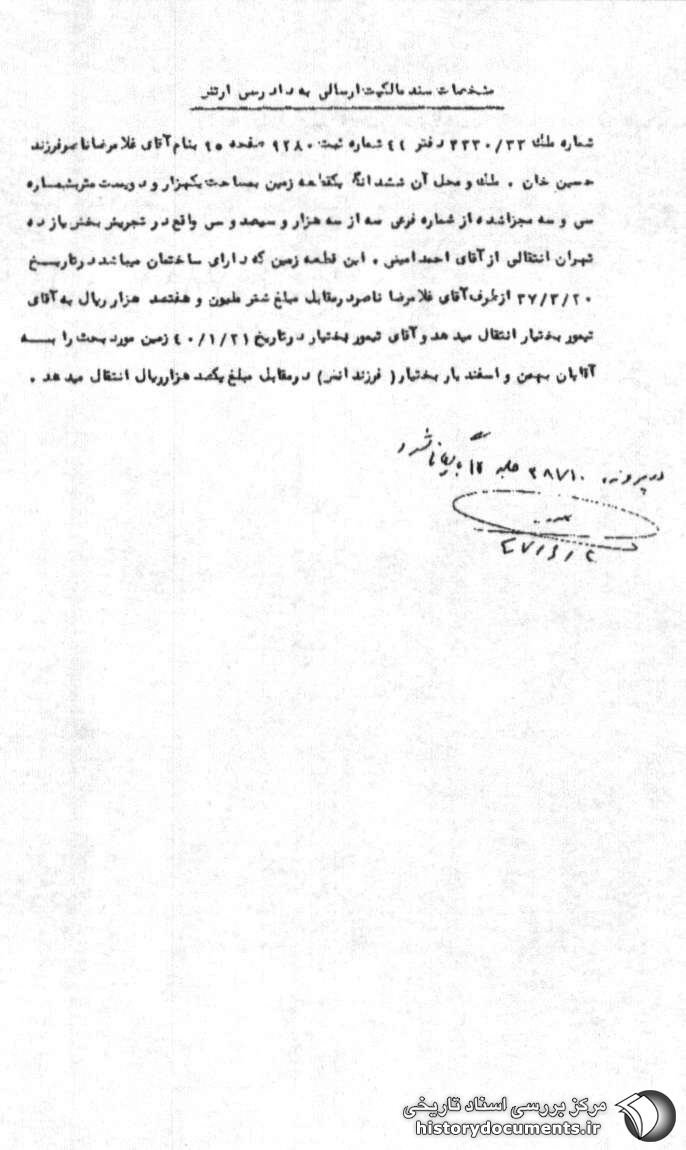 مشخصات سند مالکیت ارسالی به دادرسی ارتش
شماره ملک ۳۳۳۰/۳۳ دفتر ۴۴ شماره ثبت ۹۲۸۰ صفحه ۲۵ بنام آقای غلامرضا ناصر فرزند
حسین خان . ملک و محل آن ششدانگ یکقطعه زمین بمساحت یکهزار و دویست متر بشماره
سی و سه مجزا شده از شماره فرعی سه از سه هزار و سیصد و سی واقع در تجریش بخش یازده
تهران انتقالی از آقای احمد امینی . این قطعه زمین که دارای ساختمان میباشد در تاریخ
۳۷/۳/۲۰ از طرف آقای غلامرضا ناصر در مقابل مبلغ شش ملیون و هفتصد هزار ریال به آقای
تیمور بختیار انتقال میدهد و آقای تیمور بختیار در تاریخ ۴۰/۱/۲۱ زمین مورد بحث را به
آقایان بهمن و اسفندیار بختیار ( فرزندانش ) در مقابل مبلغ یکصد هزار ریال انتقال میدهد .
در پرونده ۳۸۷۱۰ جلد ۱۲ بایگانی شود
۴۷/۶/۲
مرکز بررسی اسناد تاریخی
historydocuments.ir